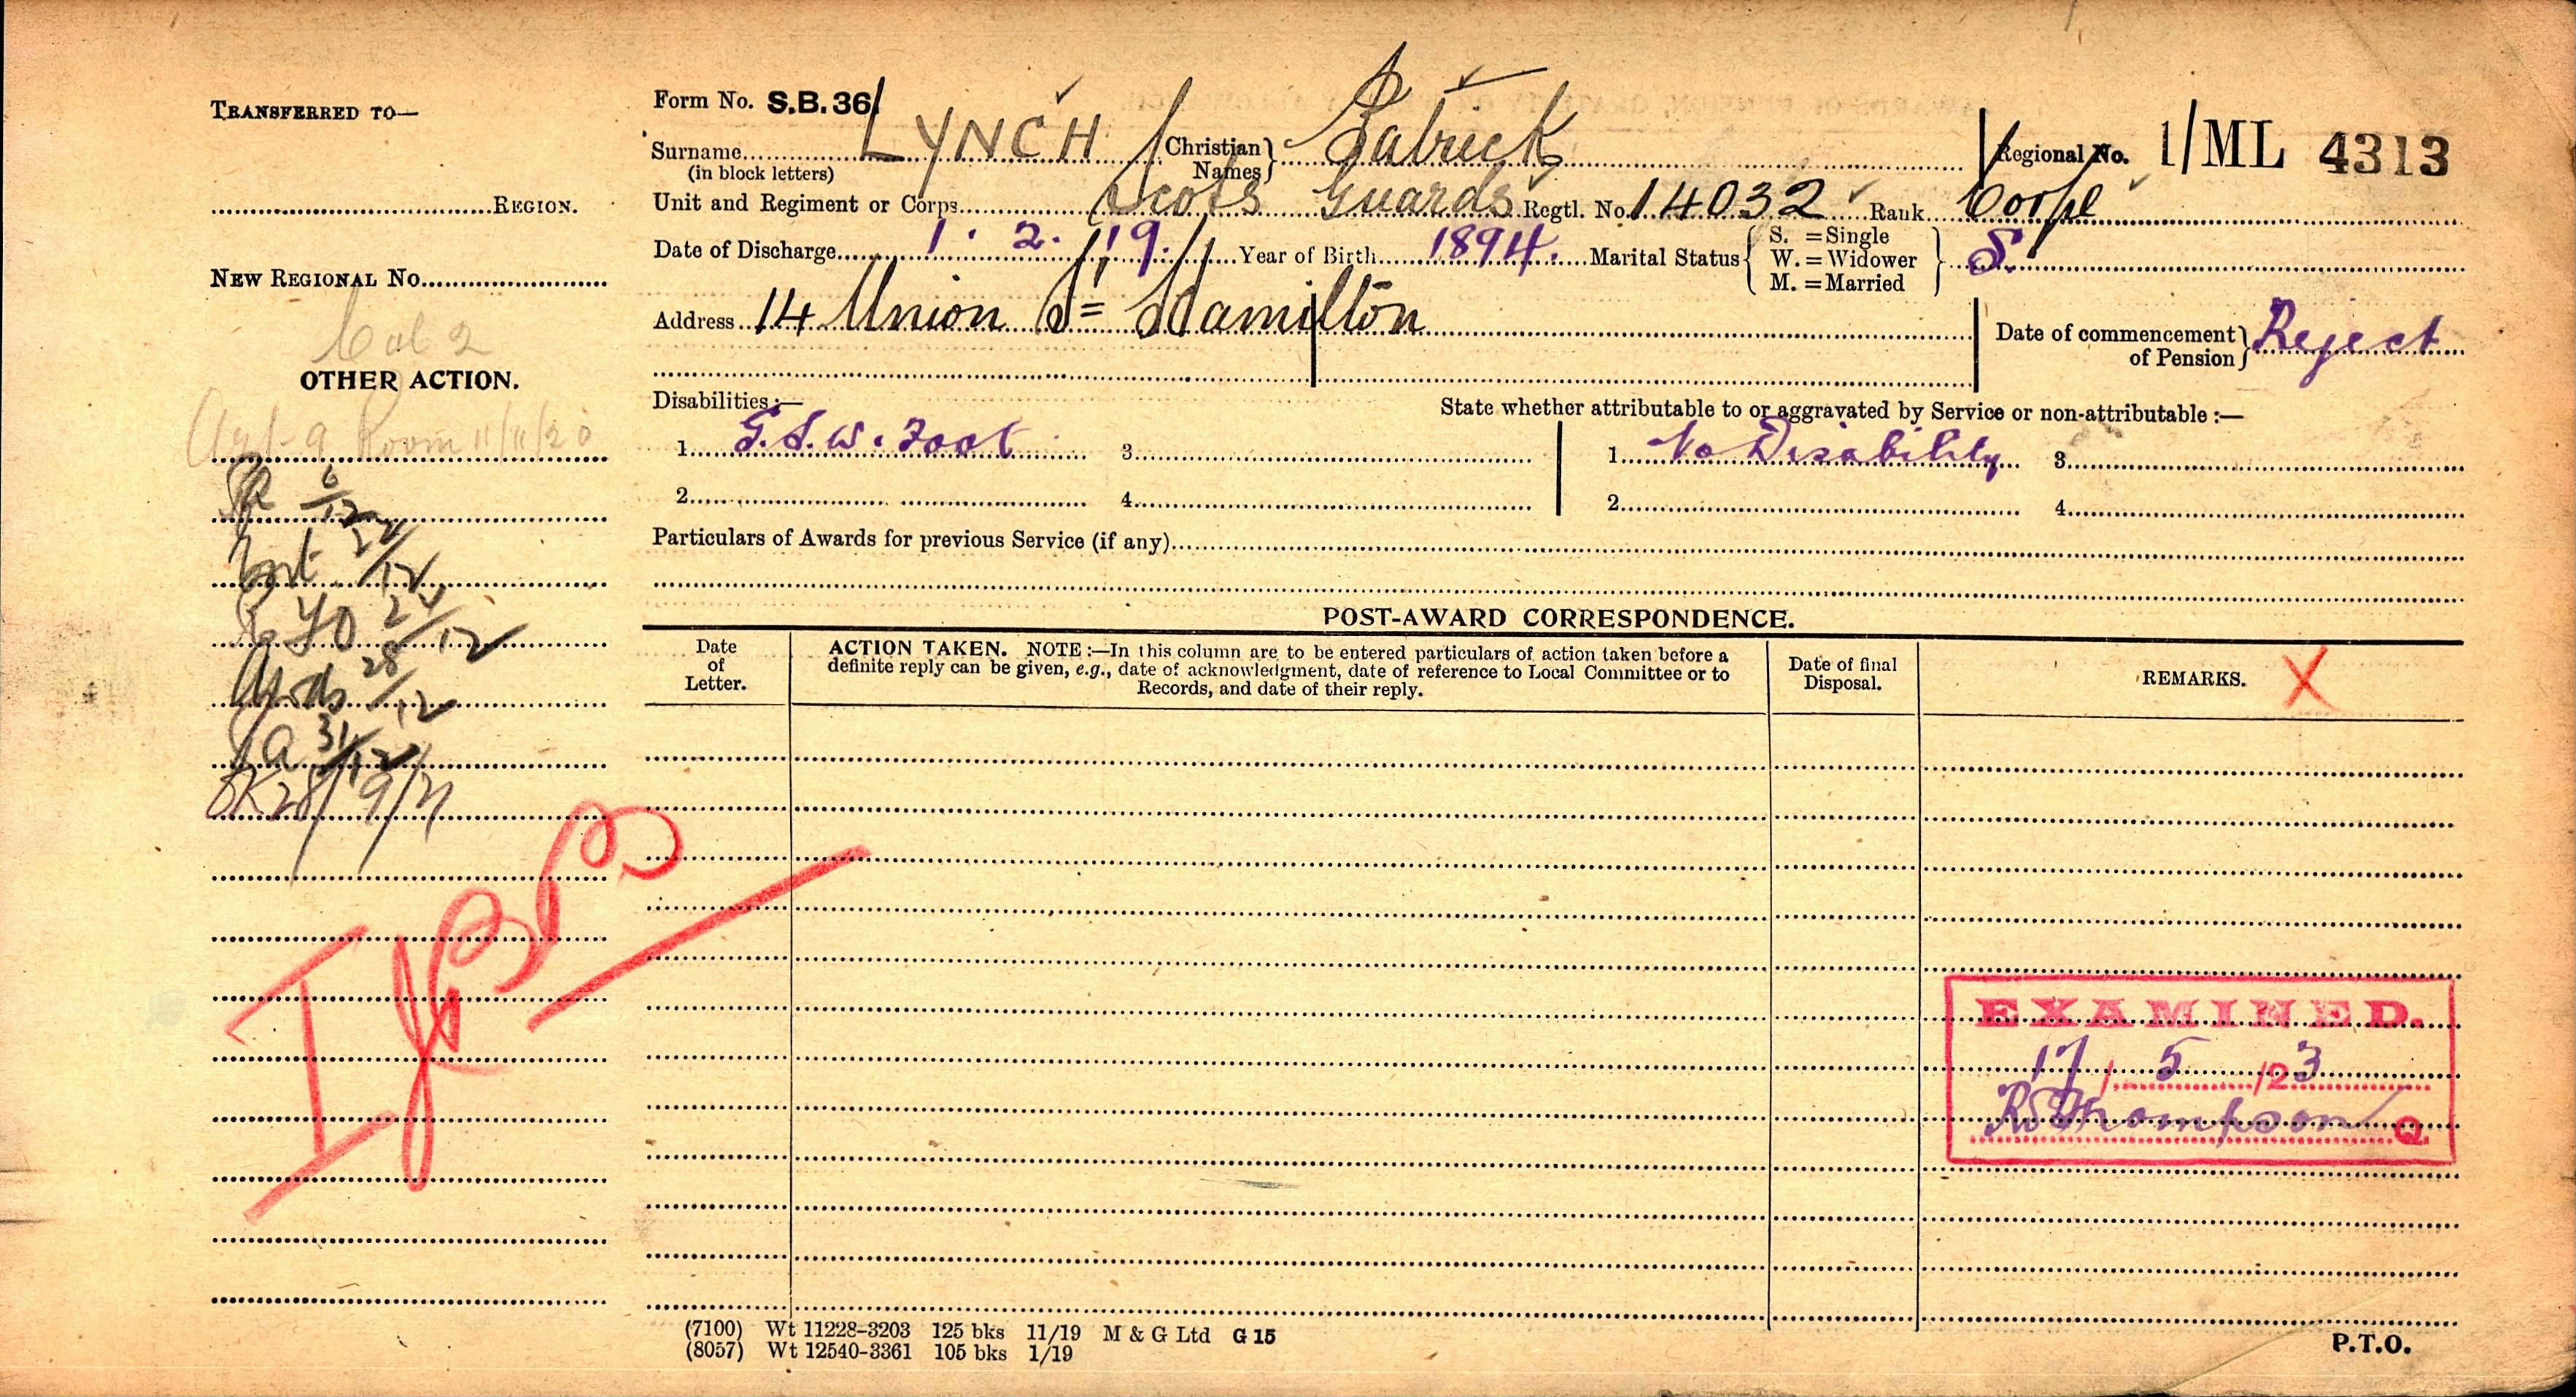 TRANSFERRED TO—
REGION.
NEW REGIONAL No.
Col 2
OTHER ACTION.
Room 11/11/20
6/12
22/12
22/12
28/12
31/12
OK 28/9/21
Form No. S.B. 36
Surname LYNCH Christian Names } Patrick Regional No. 1/ML 4313
(in block letters)
Unit and Regiment or Corps Scots Guards Regtl. No. 14032 Rank Corpl
Date of Discharge 1. 2. 19. Year of Birth 1894. Marital Status { S. =Single W. =Widower M. =Married } S.
Address 14 Union St Hamilton
Date of commencement of Pension } Reject
Disabilities :—
State whether attributable to or aggravated by Service or non-attributable :—
1. G.S.W. Foot 3. 1. No Disability 3.
2. 4. 2. 4.
Particulars of Awards for previous Service (if any)
POST-AWARD CORRESPONDENCE.
Date of Letter.
ACTION TAKEN. NOTE :—In this column are to be entered particulars of action taken before a
definite reply can be given, e.g., date of acknowledgment, date of reference to Local Committee or to
Records, and date of their reply.
Date of final Disposal.
REMARKS. X
EXAMINED.
17/5/23
Thompson Q
(7100) Wt 11228-3203 125 bks 11/19 M & G Ltd G 15
(8057) Wt 12540-3361 105 bks 1/19
P.T.O.